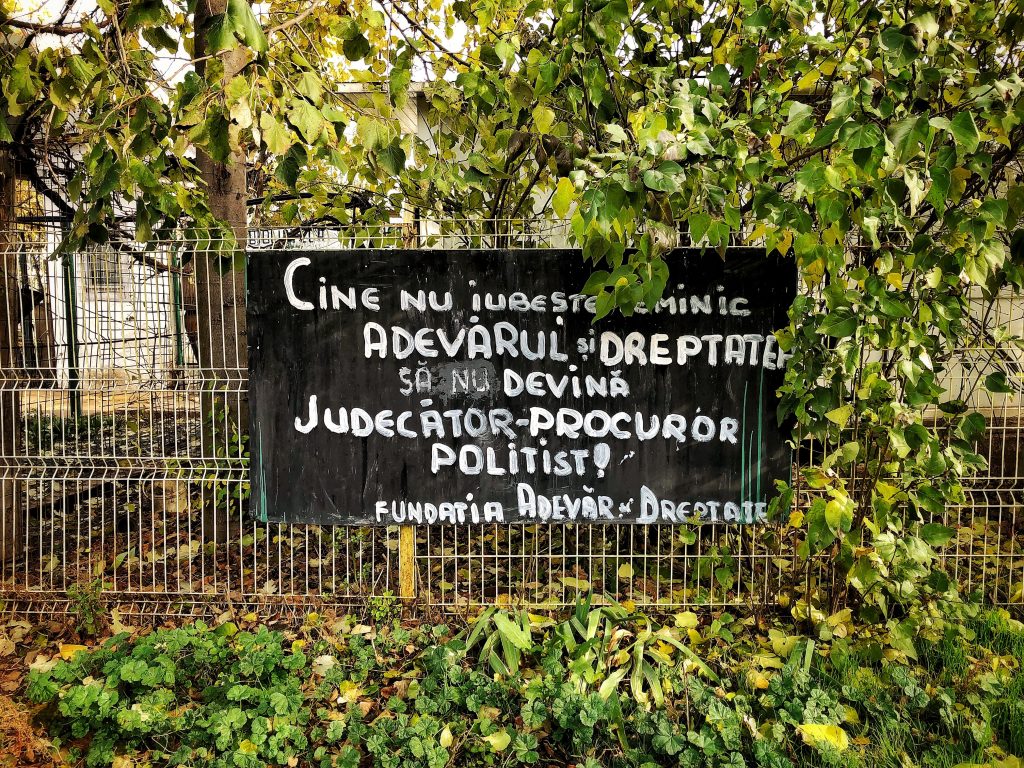 CINE NU IUBESTE
ADEVĂRUL și DREPTATEA
SĂ NU DEVINĂ
JUDECĂTOR-PROCUROR
POLITIST!
FUNDATIA ADEVĂR și DREPTATE